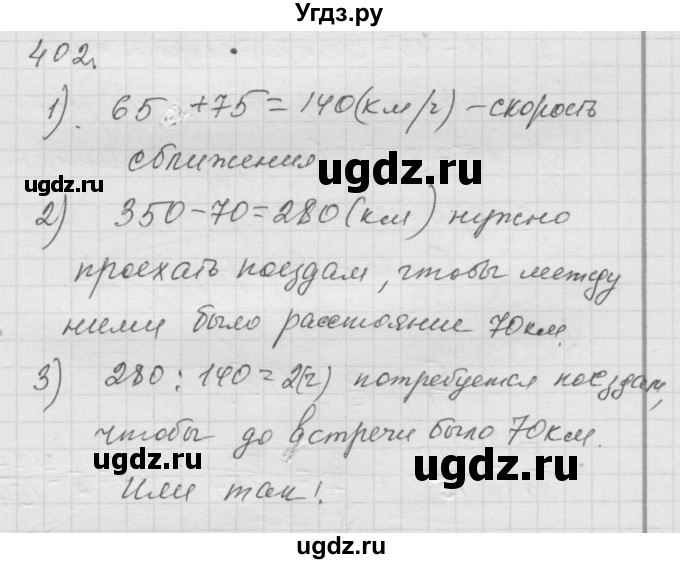 Угдз.ру
402.
1). 65 + 75 = 140 (км/ч) – скорость
сближения
ugdz.ru
ugdz.ru
ugdz.ru
2) 350 – 70 = 280 (км) нужно
проехать поездам, чтобы между
ними было расстояние 70 км.
3) 280 : 140 = 2 (ч) потребуется поездам,
чтобы до встречи было 70 км.
ugdz.ru
ugdz.ru
ugdz.ru
Или так!
ugdz.ru